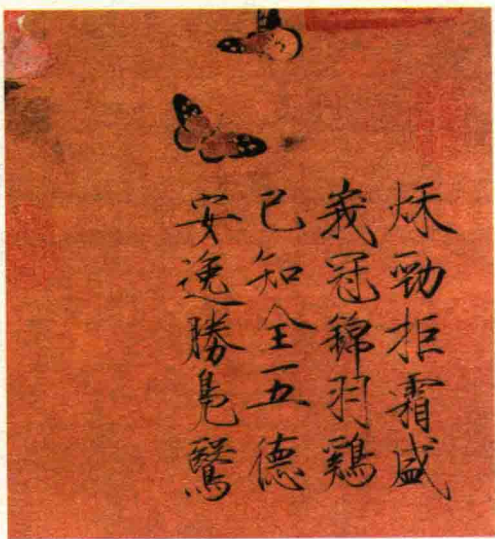 秌勁拒霜盛
峩冠錦羽鷄
已知全五德
安逸勝鳬鷖